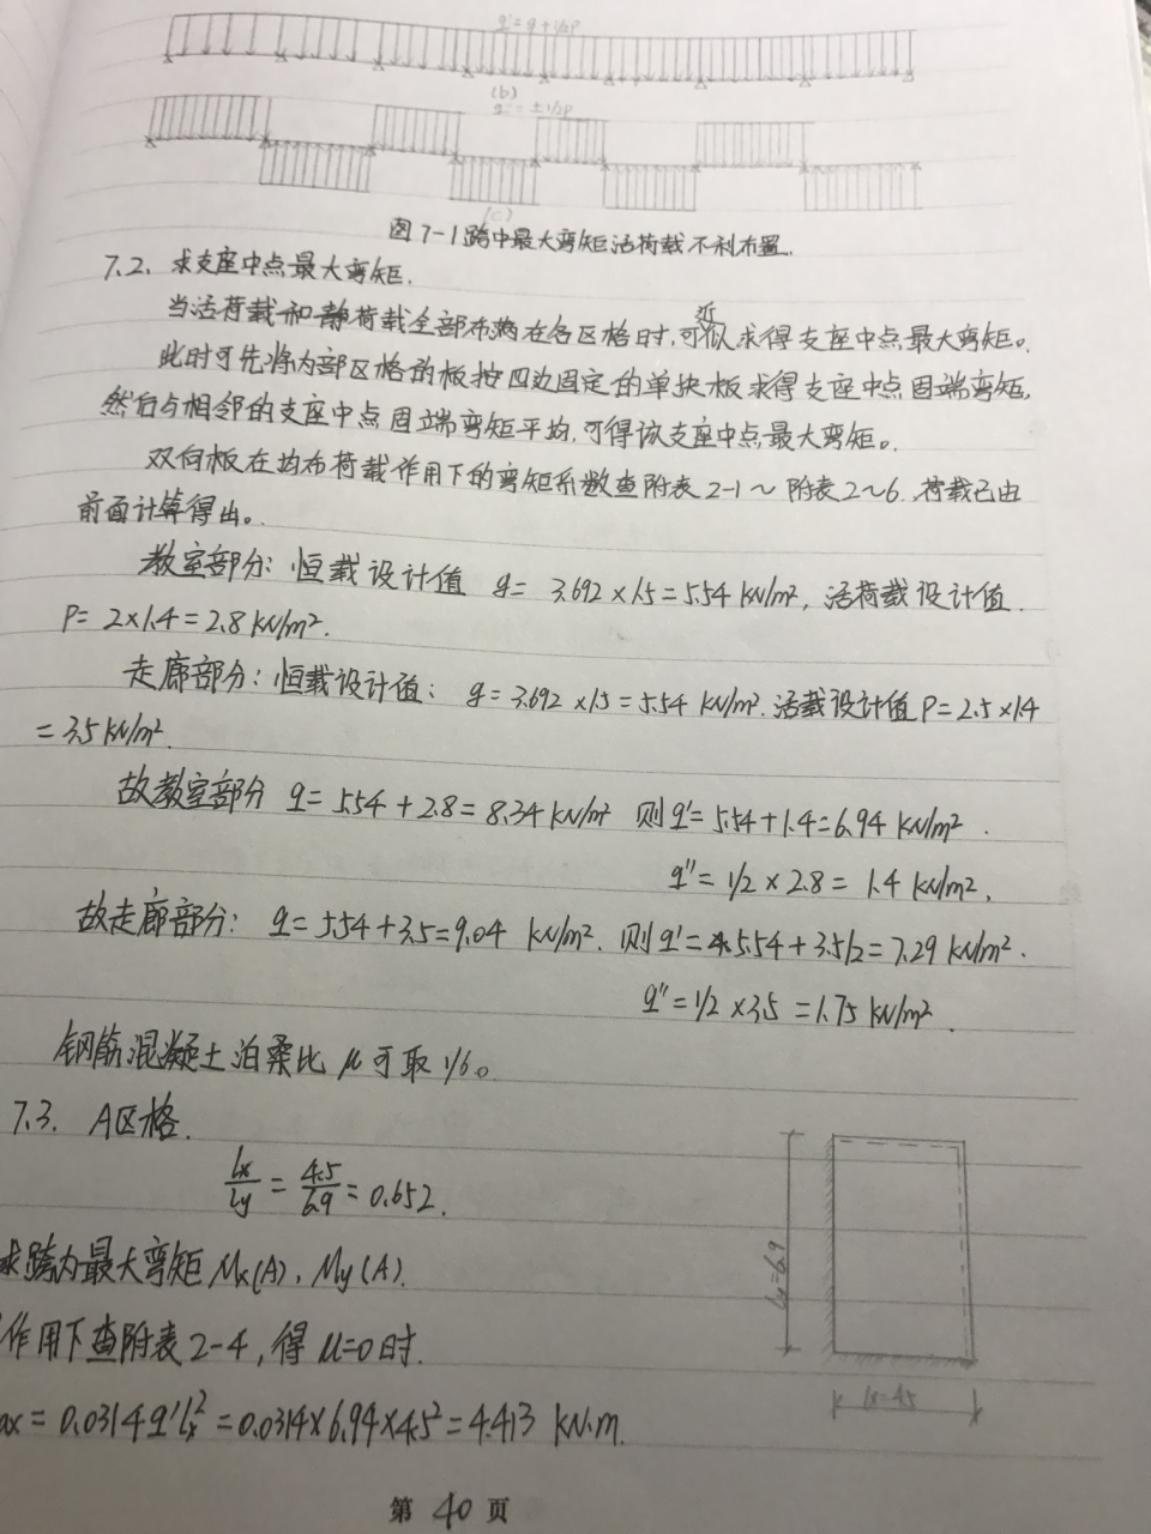 q'=g+1/2P
(b)
q''=±1/2P
(c)
图7-1跨中最大弯矩活荷载不利布置.
7.2. 求支座中点最大弯矩.
当活荷载和静荷载全部布满在各区格时,可近似求得支座中点最大弯矩。
此时可先将内部区格的板按四边固定的单块板求得支座中点固端弯矩,
然后与相邻的支座中点固端弯矩平均,可得该支座中点最大弯矩。
双向板在均布荷载作用下的弯矩系数查附表2-1～附表2～6.荷载已由
前面计算得出。
教室部分: 恒载设计值 g= 3.692×1.5=5.54 kN/m², 活荷载设计值.
P= 2×1.4=2.8 kN/m².
走廊部分: 恒载设计值: g=3.692×1.5=5.54 kN/m². 活载设计值P=2.5×1.4
=3.5 kN/m².
故教室部分 q=5.54+2.8=8.34 kN/m² 则q'=5.54+1.4=6.94 kN/m².
q''=1/2×2.8= 1.4 kN/m².
故走廊部分: q=5.54+3.5=9.04 kN/m². 则q'=5.54+3.5/2=7.29 kN/m².
q''=1/2×3.5 =1.75 kN/m².
钢筋混凝土泊桑比 μ可取1/6。
7.3. A区格.
lx/ly = 4.5/6.9 = 0.652.
求跨内最大弯矩Mx(A), My(A).
作用下查附表2-4,得μ=0时.
ax=0.0314q'lx²=0.0314×6.94×4.5²=4.413 kN·m.
ly=6.9
lx=4.5
第 40 页